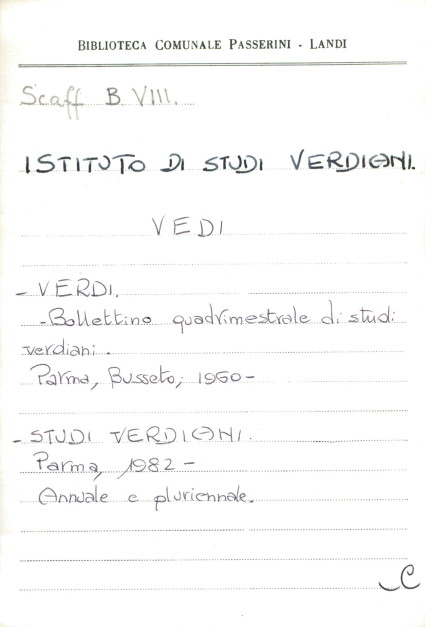 BIBLIOTECA COMUNALE PASSERINI - LANDI
Scaff B. VIII.
ISTITUTO DI STUDI VERDIANI.
VEDI
- VERDI.
- Bollettino quadrimestrale di studi
verdiani.
Parma, Busseto, 1960 -
- STUDI VERDIANI.
Parma, 1982 -
Annuale e pluriennale.
C